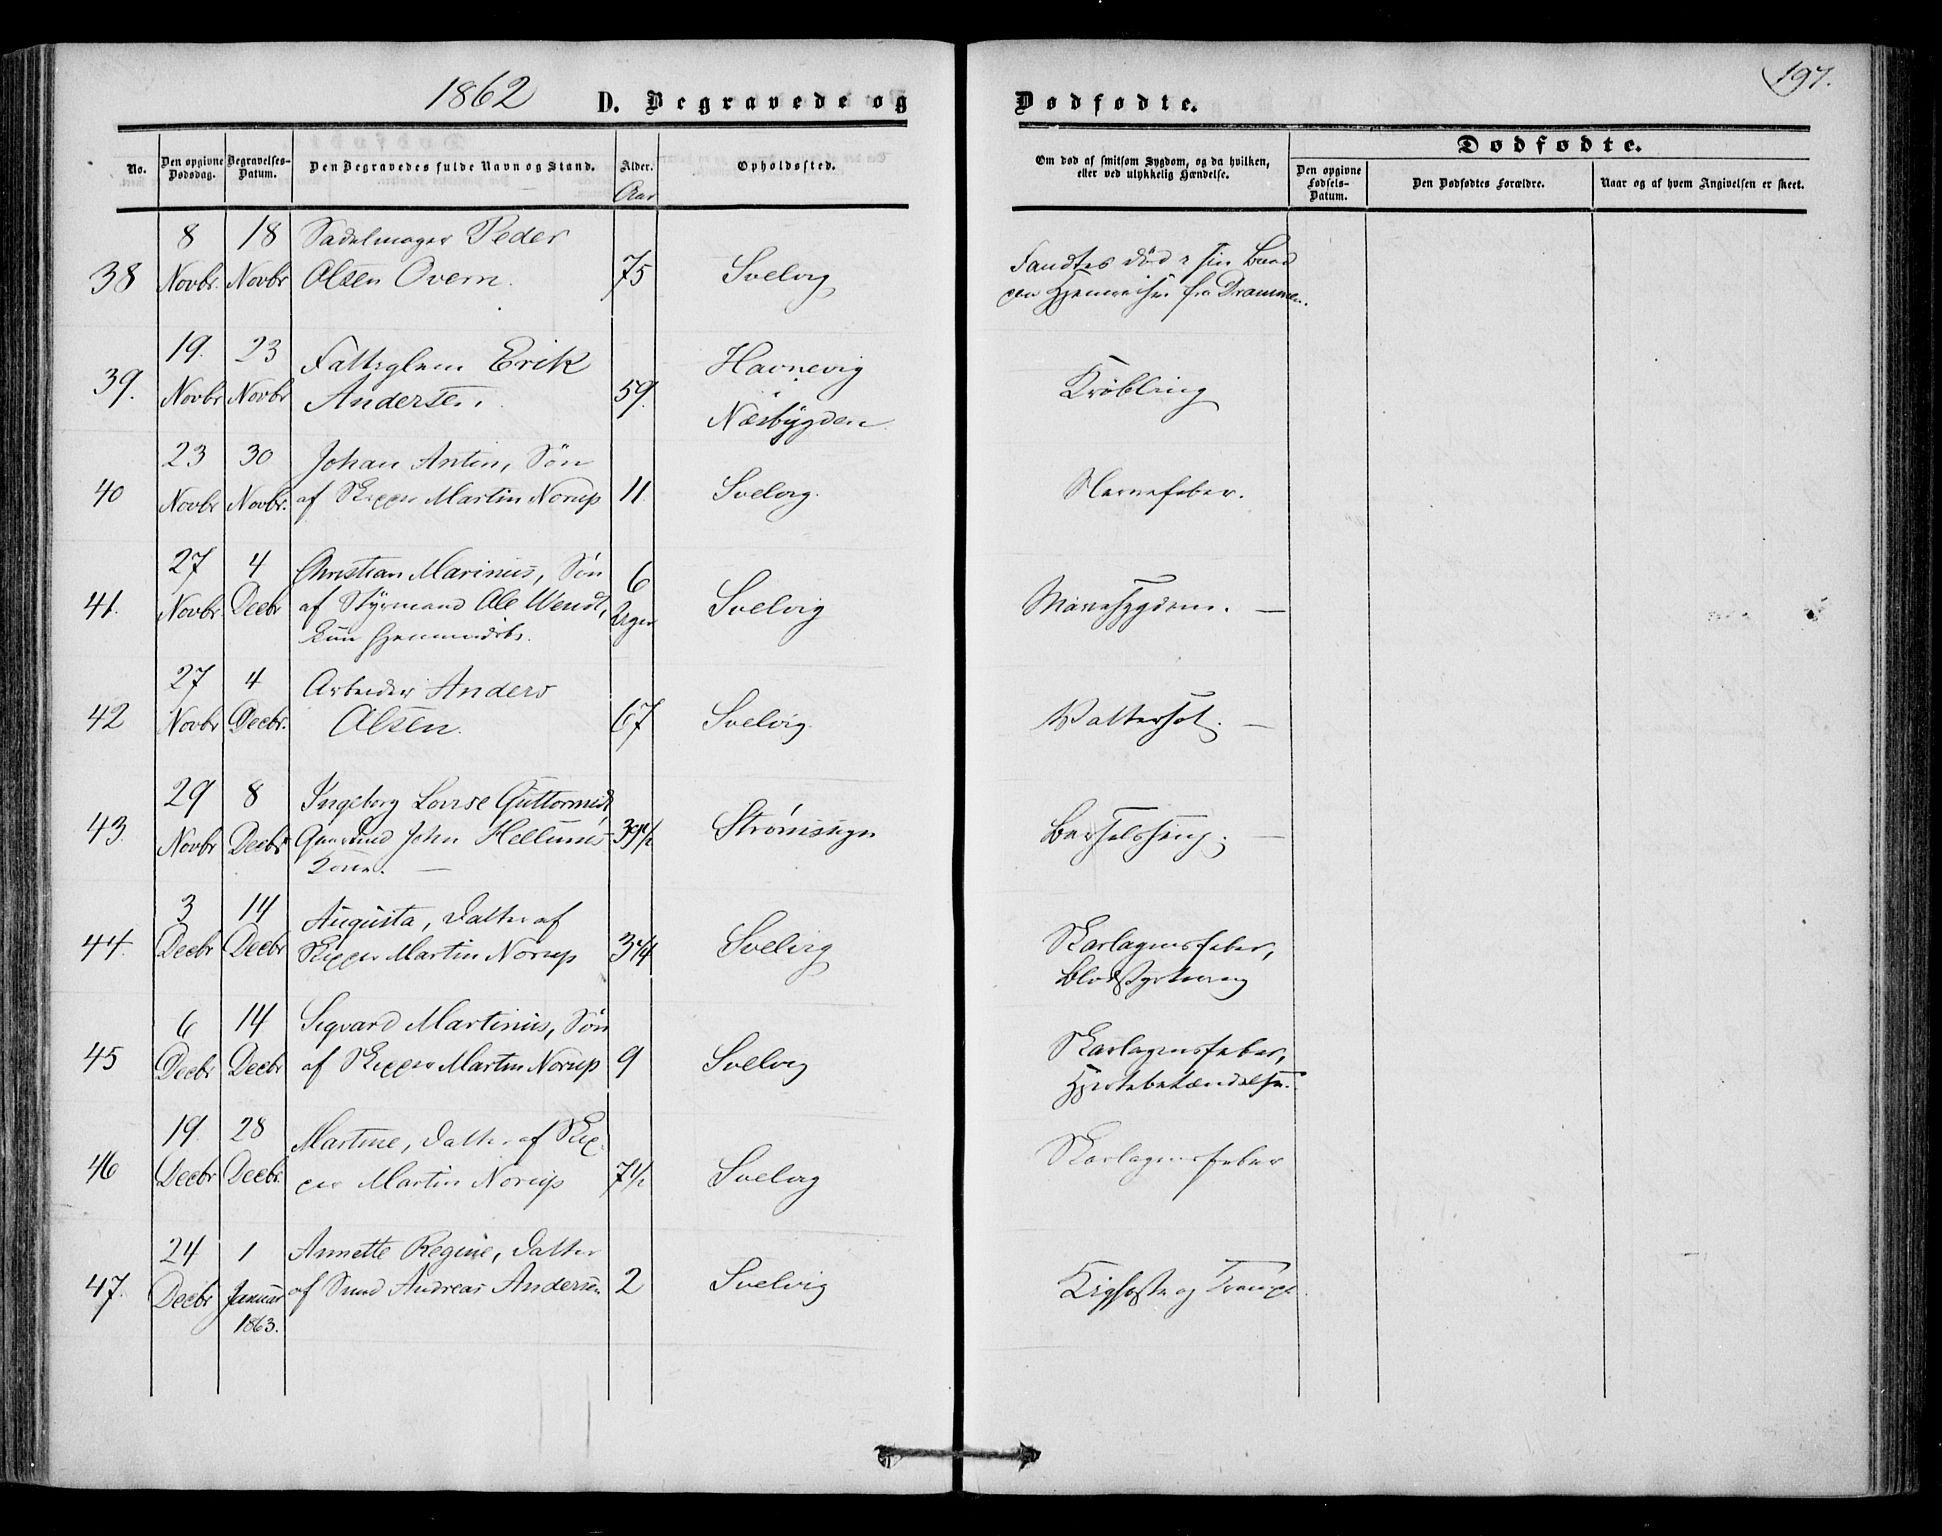 1862 D. Begravede og Dødfødte. 197.
No. Den opgivne Dødsdag. Begravelses-Datum. Den Begravedes fulde Navn og Stand. Alder. Opholdssted. Om død af smitsom Sygdom, og da hvilken, eller ved ulykkelig Hændelse. Dødfødte.
Den opgivne Fødsels-Datum. Den Dødfødtes Forældre. Naar og af hvem Angivelsen er skeet.
Aar
8 18 Sadelmager Peder
38 Novbr. Novbr Olsen Overn. 75 Svelvig Fandtes død i sin Baad
paa Hjemreisen fra Drammen.
19. 23 Fattiglem Erik Havnevig
39. Novbr Novbr Andersen. 59. i Kröbling
Næsbygden
23 30 Johan Anton, Sön
40 Novbr Novbr. af Skipper Martin Norup 11 Svelvig. Nervefeber.
27 4 Christian Marinus, Sön 6
41. Novbr Decbr af Styrmand Ole Wendt, Uger Svelvig Mavesygdom. —
kun hjemmedöbt.
27 4 Arbeider Anders
42 Novbr Decbr. Olsen. 67 Svelvig. Vattersot. —
29 8 Ingeborg Lovise Guttormsdt,
43. Novbr Decbr Gaardmd John Hellums 39 1/2 Strömsogn Barselseng. —
Kone. —
3 14 Augusta, Datter af
44. Decbr Decbr Skipper Martin Norup 3 3/4 Svelvig Skarlagensfeber,
Blodstyrtning
6 14 Sigvard Martinus, Sön
45 Decbr Decbr af Skipper Martin Norup 9 Svelvig Skarlagensfeber,
Hjertebetændelse.
19. 28 Martine, Datter af Skip-
46 Decbr Decbr. per Martin Norup 7 1/2 Svelvig Skarlagensfeber
24 1 Annette Regine, Datter
47. Decbr Januar af Smed Andreas Andersen 2 Svelvig Kighoste og Krampe.
1863.